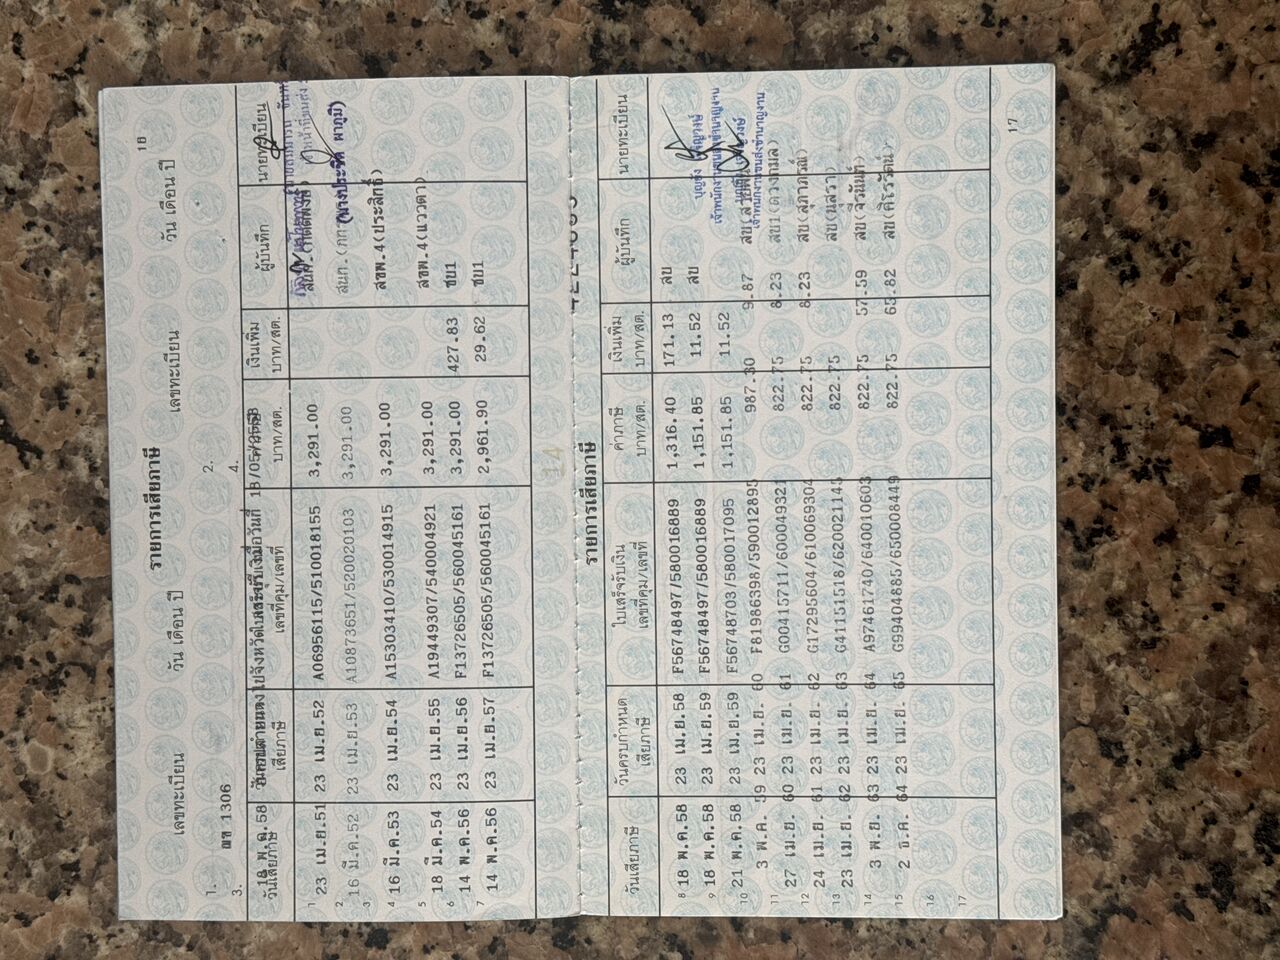 18
รายการเสียภาษี
เลขทะเบียน วัน เดือน ปี เลขทะเบียน วัน เดือน ปี
1. 2.
3. ผฑ 1306 4.
18 พ.ค.58
วันเสียภาษี วันครบกำหนดเสียภาษี ใบเสร็จรับเงิน เลขที่คุม/เลขที่ ค่าภาษี บาท/สต. เงินเพิ่ม บาท/สต. ผู้บันทึก นายทะเบียน
1 23 เม.ย.51 23 เม.ย.52 A06956115/510018155 3,291.00
2 16 มี.ค.52 23 เม.ย.53 A10873651/520020103 3,291.00
3
4 16 มี.ค.53 23 เม.ย.54 A15303410/530014915 3,291.00 สขพ.4(ประสิทธิ์)
5 18 มี.ค.54 23 เม.ย.55 A19449307/540004921 3,291.00 สขพ.4(แววดา)
6 14 พ.ค.56 23 เม.ย.56 F13726505/560045161 3,291.00 427.83 ชบ1
7 14 พ.ค.56 23 เม.ย.57 F13726505/560045161 2,961.90 29.62 ชบ1
14
รายการเสียภาษี
วันเสียภาษี วันครบกำหนดเสียภาษี ใบเสร็จรับเงิน เลขที่คุม/เลขที่ ค่าภาษี บาท/สต. เงินเพิ่ม บาท/สต. ผู้บันทึก นายทะเบียน
8 18 พ.ค.58 23 เม.ย.58 F56748497/580016889 1,316.40 171.13 สบ
9 18 พ.ค.58 23 เม.ย.59 F56748497/580016889 1,151.85 11.52 สบ
10 21 พ.ค.58 23 เม.ย.59 F56748703/580017095 1,151.85 11.52
3 พ.ค. 59 23 เม.ย. 60 F81986398/590012895 987.30 9.87
11 27 เม.ย. 60 23 เม.ย. 61 G00415711/600049321 822.75 8.23
12 24 เม.ย. 61 23 เม.ย. 62 G17295604/610069304 822.75 8.23 สบ(สุภาภรณ์)
13 23 เม.ย. 62 23 เม.ย. 63 G41151518/620021145 822.75 สบ(นุสรา)
14 3 พ.ย. 63 23 เม.ย. 64 A97461740/640010603 822.75 57.59
15 2 ธ.ค. 64 23 เม.ย. 65 G99404885/650008449 822.75 65.82
16
17
17